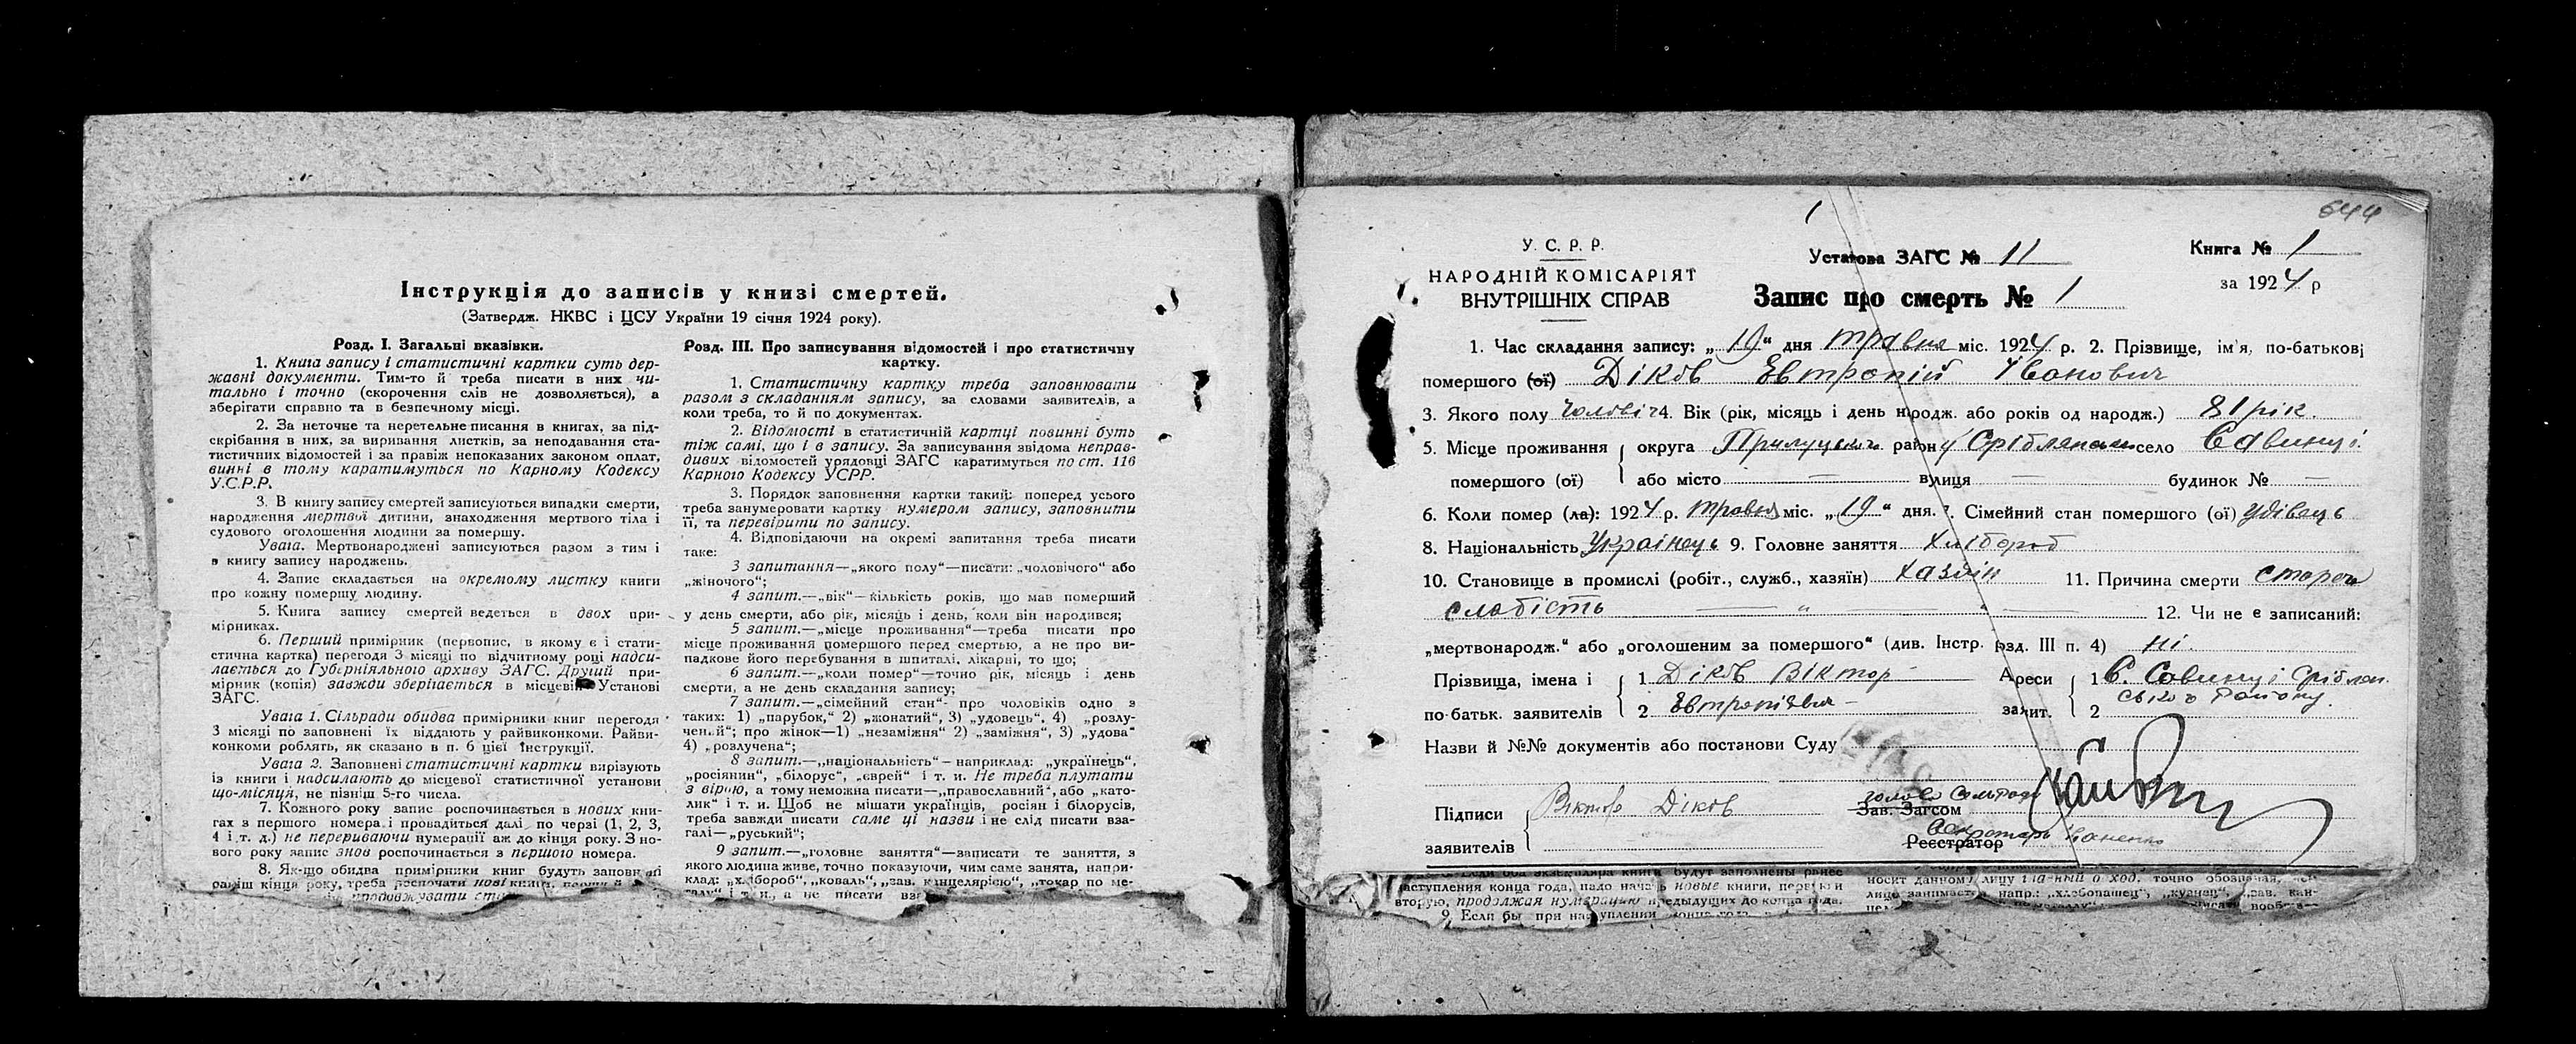 Інструкція до записів у книзі смертей.
(Затвердж. НКВС і ЦСУ України 19 січня 1924 року).
Розд. І. Загальні вказівки.
1. Книга запису і статистичні картки суть дер-
жавні документи. Тим-то й треба писати в них чи-
тально і точно (скорочення слів не дозволяється), а
зберігати справно та в безпечному місці.
2. За неточне та неретельне писання в книгах, за під-
скрібання в них, за виривання листків, за неподавання ста-
тистичних відомостей і за правіж непоказаних законом оплат,
винні в тому каратимуться по Карному Кодексу
У.С.Р.Р.
3. В книгу запису смертей записуються випадки смерти,
народження мертвої дитини, знаходження мертвого тіла і
судового оголошення людини за померлу.
Увага. Мертвонароджені записуються разом з тим і
в книгу запису народжень.
4. Запис складається на окремому листку книги
про кожну померлу людину.
5. Книга запису смертей ведеться в двох при-
мірниках.
6. Перший примірник (первопис, в якому є і стати-
стична картка) перегодя 3 місяці по відчитному році надси-
лається до Губерніяльного архиву ЗАГС. Другий при-
мірник (копія) завжди зберігається в місцевій Установі
ЗАГС.
Увага 1. Сільради обидва примірники книг перегодя
3 місяці по заповнені їх віддають у райвиконкоми. Райви-
конкоми роблять, як сказано в п. 6 цієї Інструкції.
Увага 2. Заповнені статистичні картки вирізують
із книги і надсилають до місцевої статистичної установи
що-місяця, не пізніш 5-го числа.
7. Кожного року запис роспочинається в нових кни-
гах з першого номера і провадиться далі по черзі (1, 2, 3,
4 і т. д.) не перериваючи нумерації аж до кінця року. З но-
вого року запис знов роспочинається з першого номера.
8. Як-що обидва примірники книг будуть заповнені
раніш кінця року, треба роспочати нові книги,
продовжувати
Розд. III. Про записування відомостей і про статистичну
картку.
1. Статистичну картку треба заповнювати
разом з складанням запису, за словами заявителів, а
коли треба, то й по документах.
2. Відомості в статистичній картці повинні буть
тіж самі, що і в запису. За записування звідома неправ-
дивих відомостей урядовці ЗАГС каратимуться по ст. 116
Карного Кодексу УСРР.
3. Порядок заповнення картки такий: поперед усього
треба занумеровати картку нумером запису, заповнити
її, та перевірити по запису.
4. Відповідаючи на окремі запитання треба писати
таке:
3 запитання—„якого полу"—писати: „чоловічого" або
„жіночого";
4 запит.—„вік"—кількість років, що мав померший
у день смерти, або рік, місяць і день, коли він народився;
5 запит.—„місце проживання"—треба писати про
місце проживання помершого перед смертью, а не про ви-
падкове його перебування в шпиталі, лікарні, то що;
6 запит.—„коли помер"—точно рік, місяць і день
смерти, а не день складання запису;
7 запит.—„сімейний стан"- про чоловіків одно з
таких: 1) „парубок," 2) „жонатий", 3) „удовець", 4) „розлу-
чений"; про жінок—1) „незаміжня" 2) „заміжня", 3) „удова"
4) „розлучена";
8 запит.—„національність"— наприклад: „українець",
„росіянин", „білорус", „єврей" і т. и. Не треба плутати
з вірою, а тому неможна писати—„православний", або „като-
лик" і т. и. Щоб не мішати українців, росіян і білорусів,
треба завжди писати саме ці назви і не слід писати вза-
галі—„руський";
9 запит.—„головне заняття"—записати те заняття, з
якого людина живе, точно показуючи, чим саме занята, напри-
клад: „хлібороб", „коваль", „зав. канцелярією", „токар по ме-
талу" і т. и., а не писати
644
У. С. Р. Р.
НАРОДНІЙ КОМІСАРІЯТ
ВНУТРІШНІХ СПРАВ
1
Установа ЗАГС № 11
Запис про смерть № 1
Книга № 1
за 1924 р
1. Час складання запису: „19" дня травня міс. 1924 р. 2. Прізвище, ім'я, по-батькові
помершого (ої) Діков Евтропій Іванович
3. Якого полу чоловіч 4. Вік (рік, місяць і день народж. або років од народж.) 81 рік.
5. Місце проживання округа Прилуцька району Срібляпськ село Савинці.
помершого (ої) або місто — вулиця — будинок № —
6. Коли помер (ла): 1924 р. травня міс. „19" дня. 7. Сімейний стан помершого (ої) удівець
8. Національність Українець 9. Головне заняття Хлібороб
10. Становище в промислі (робіт., служб., хазяїн) хазяїн 11. Причина смерти стареча
слабість — „ — „ — 12. Чи не є записаний:
„мертвонародж." або „оголошеним за помершого" (див. Інстр. рзд. III п. 4) ні.
Прізвища, імена і 1 Діков Віктор Адреси 1 С. Савинці Сріблян.
по-батьк. заявителів 2 Евтропієвич – заявит. 2 ського Району.
Назви й №№ документів або постанови Суду
Підписи Віктор Діков голова Сельради
Зав. Загсом
заявителів Секретарь
Реєстратор
наступления конца года, надо начать новые книги, первую и
вторую, продолжая нумерацию предыдущих до конца года.
9. Если бы при наступлении конца года
носит данному лицу главный доход, точно обозначая, чем
лицо занимается, напр.: „хлебопашец", „кузнец", „зав. кан-